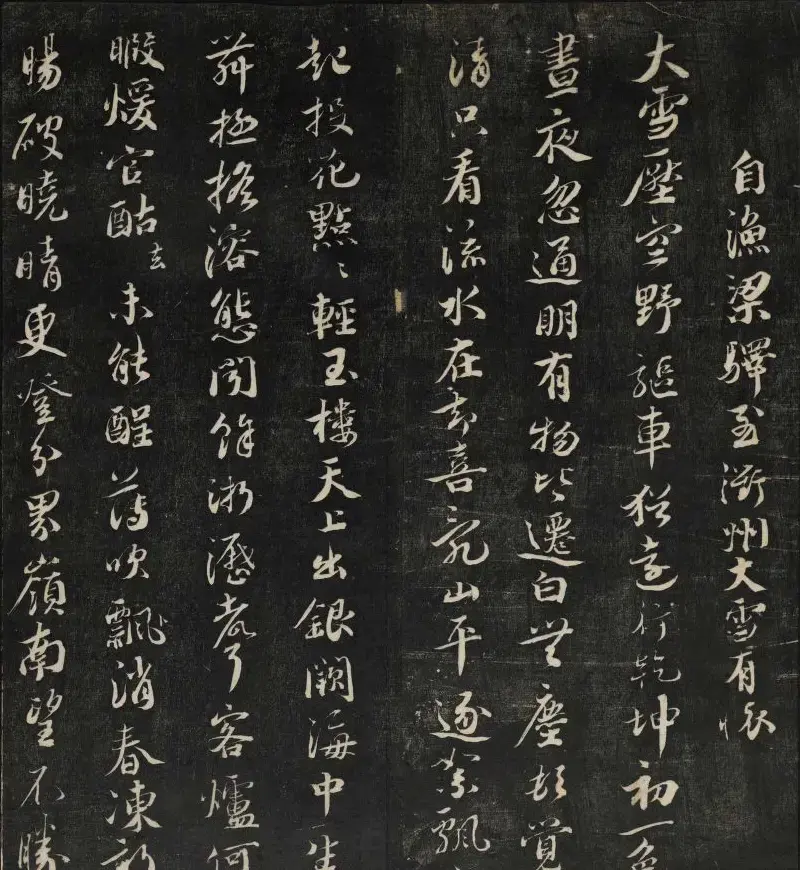 自漁梁驛至衢州大雪有懷
大雪壓空野驅車猶遠行乾坤初一色
晝夜忽通明有物皆遷白無塵頓覺
清只看流水在却喜亂山平逐絮飄
起投花點〻輕玉樓天上出銀闕海中生
舞極搖溶態聞餘淅瀝聲客爐何
暇煖官酤去未能醒薄吹飄消春凍新
暘破曉晴更登分界嶺南望不勝